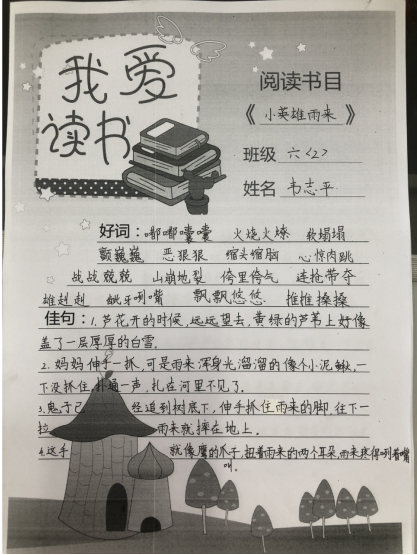 我爱
读书
阅读书目
《小英雄雨来》
班级 六<2>
姓名 韦志平
好词：嘟嘟囔囔 火烧火燎 软塌塌
颤巍巍 恶狠狠 缩头缩脑 心惊肉跳
战战兢兢 山崩地裂 侉里侉气 连抢带夺
雄赳赳 龇牙咧嘴 飘飘悠悠 推推搡搡
佳句：1.芦花开的时候,远远望去,黄绿的芦苇上好像
盖了一层厚厚的白雪.
2.妈妈伸手一抓,可是雨来浑身光溜溜的像个小泥鳅,一
下没抓住,扑通一声,扎在河里不见了.
3.鬼子已 经追到树底下,伸手抓住雨来的脚,往下一
拉 雨来就摔在地上.
4.这手 就像鹰的爪子,扭着雨来的两个耳朵,雨来疼得咧着嘴
叫.